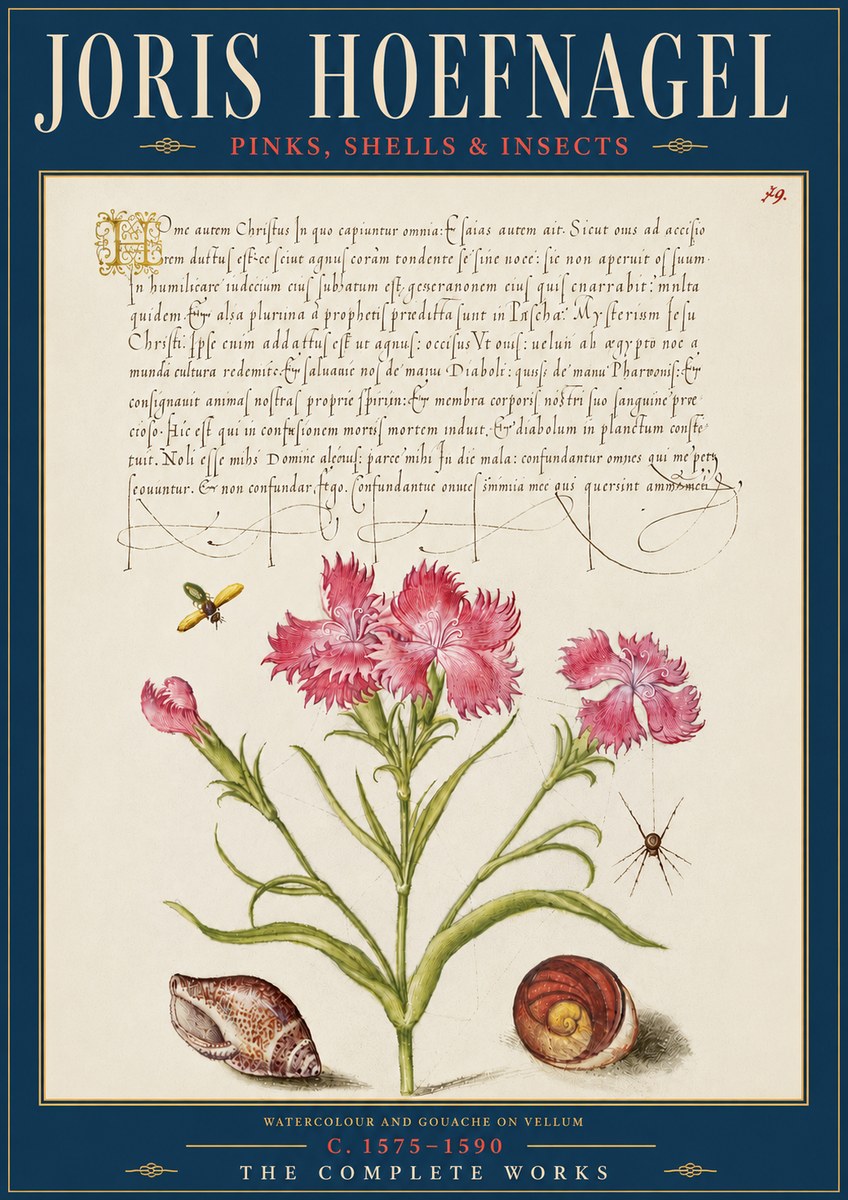 JORIS HOEFNAGEL
PINKS, SHELLS & INSECTS
79.
Home autem Chriſtus In quo capiuntur omnia: Eſaias autem ait. Sicut ouis ad
rem ductuſ eſt ce ſicut agnuſ coram tondente ſe ſine noce: ſic non aperuit oſ ſuum
In iudicium eiuſ eſt eiuſ quiſ enarrabit: mnlta
quidem Et alsa plurina a prophetiſ prædicta ſunt in Paſcha. Myſterium Ieſu
Chriſti: Ipſe enim ut agnuſ: occiſus Vt ouiſ: ab ægypto noe a
munda cultura redemit: Et ſaluauit noſ de manu Diaboli: quaſi de manu Pharaoniſ: Et
conſignauit animaſ noſtraſ proprie Et membra corporiſ noſtri ſuo ſanguine prœ
cioſo. Hic eſt qui in confuſionem mortiſ mortem induit. Et diabolum in planctum conſte
tuit. Noli eſſe mihi Domine parce mihi In die mala: confundantur omnes qui me
Et non confundar. Confundantue mee quersint
WATERCOLOUR AND GOUACHE ON VELLUM
C. 1575–1590
THE COMPLETE WORKS